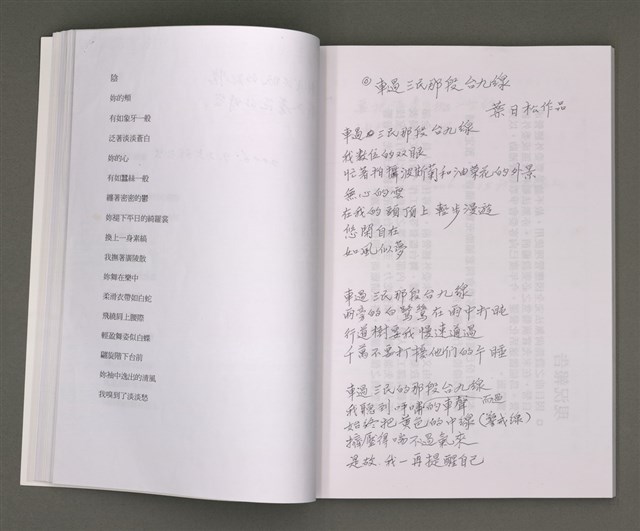 陰
妳的頰
有如象牙一般
泛著淡淡蒼白
妳的心
有如蠶絲一般
纏著密密的鬱
妳褪下平日的綺羅裳
換上一身素縞
我撫著廣陵散
妳舞在樂中
柔滑衣帶如白蛇
飛繞肩上腰際
輕盈舞姿似白蝶
翩旋階下台前
妳袖中逸出的清風
我嗅到了淡淡愁
車過三民那段台九線
葉日松作品
車過三民那段台九線
我數位的双眼
忙著拍攝波斯菊和油菜花的外景
無心的雲
在我的頭頂上 輕步漫遊
悠閒自在
如風似夢
車過三民那段台九線
兩旁的白鷺鷥在雨中打盹
行道樹要我慢速通過
千萬不要打擾他們的午睡
車過三民的那段台九線
我聽到呼嘯的車聲 而過
始終把黃色的中線（雙黃線）
擠壓得喘不過氣來
是故 我一再提醒自己